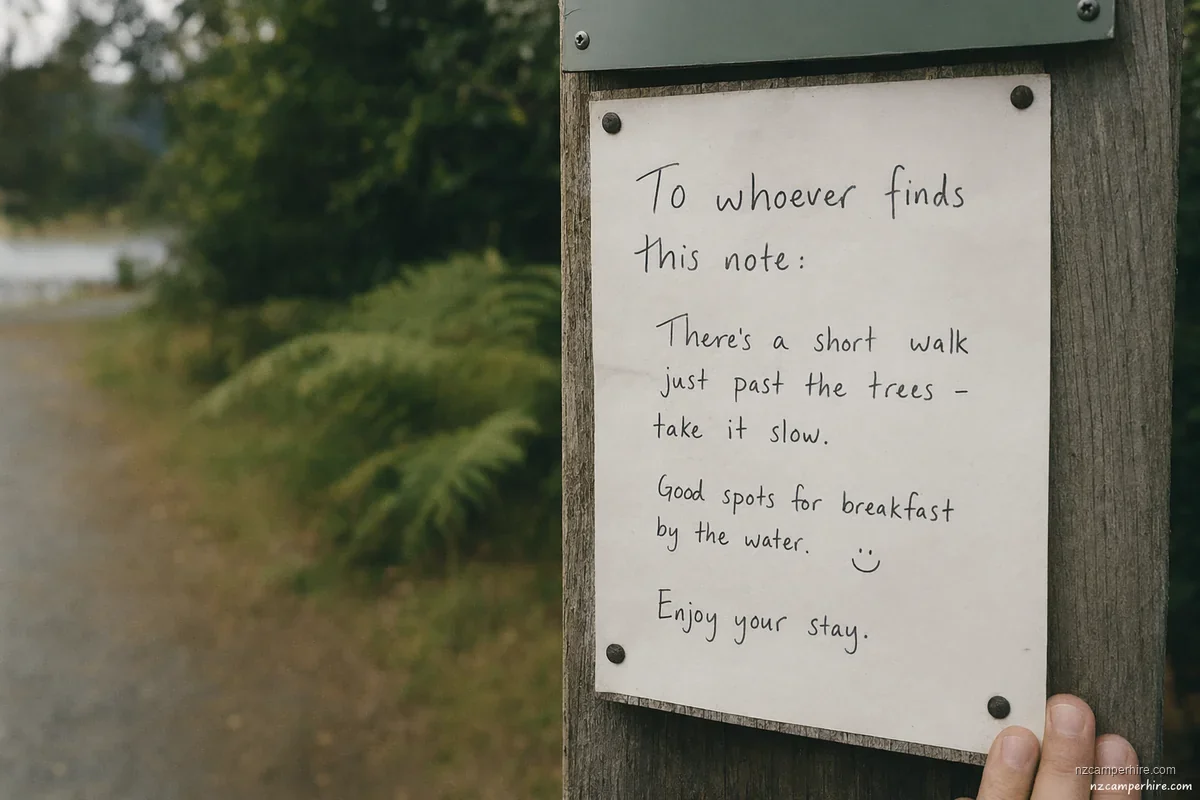 To whoever finds
this note:
There's a short walk
just past the trees –
take it slow.
Good spots for breakfast
by the water.
Enjoy your stay.
nzcamperhire.com
nzcamperhire.com